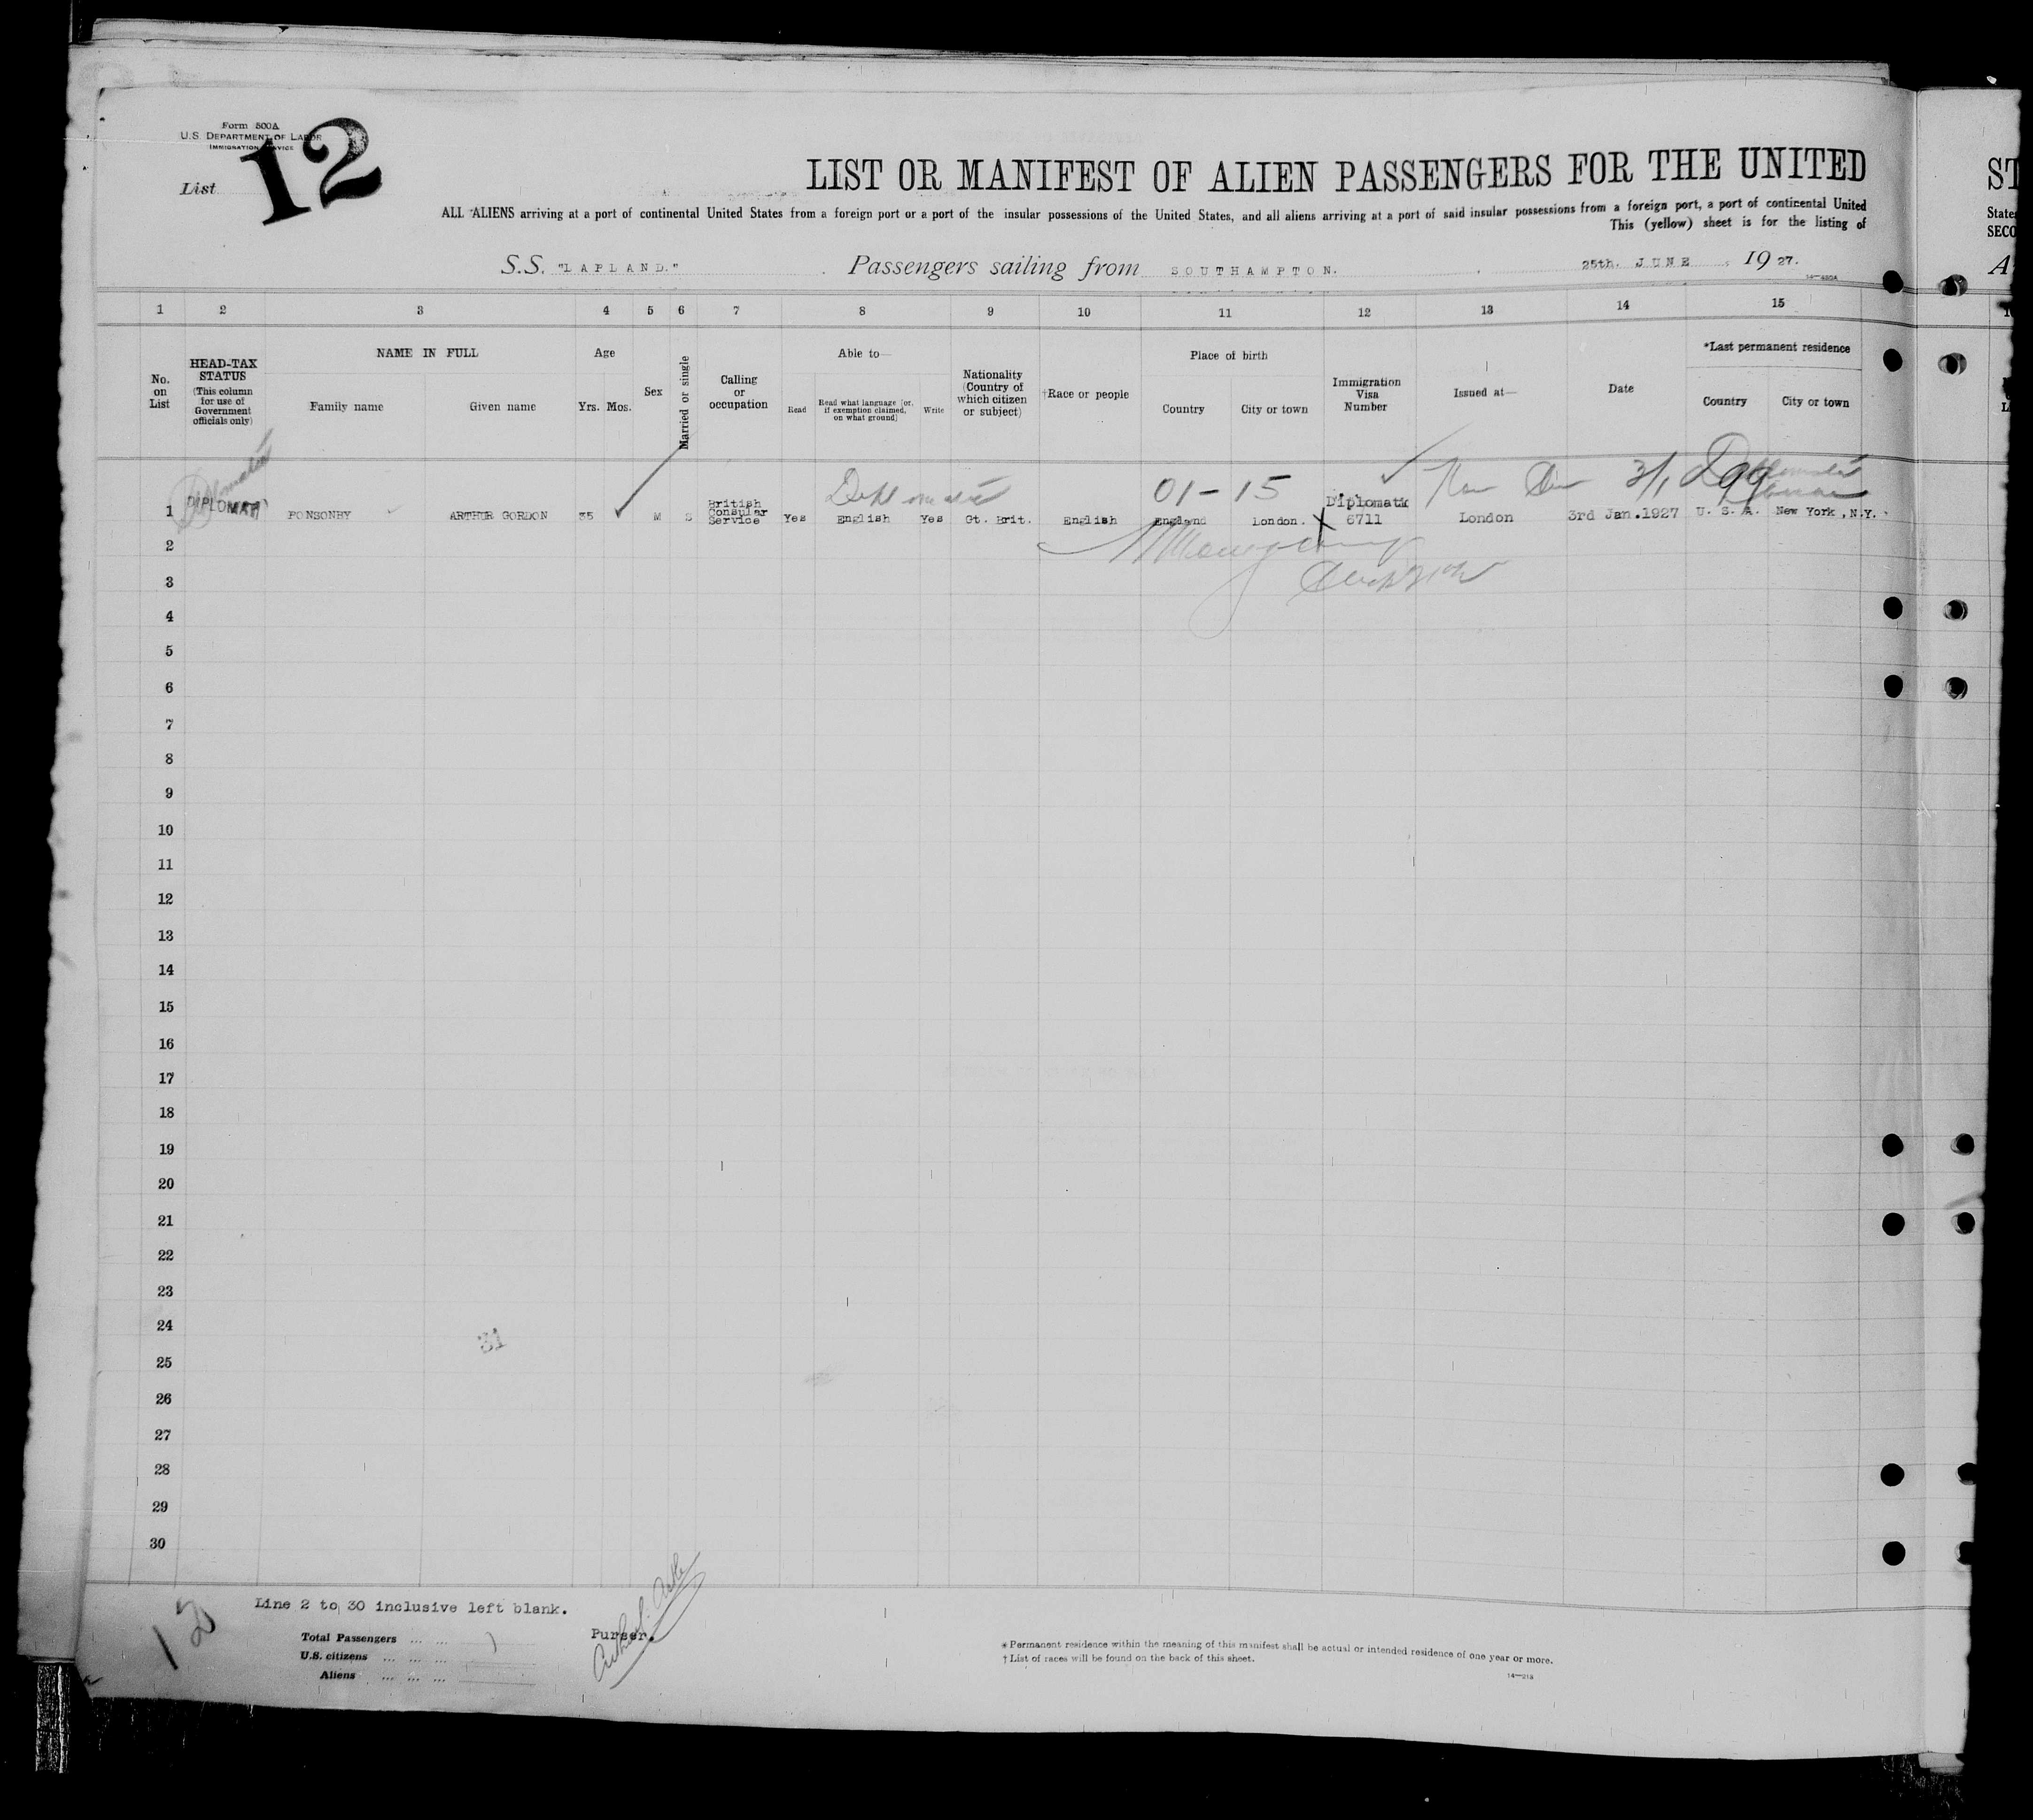 Form 500A
U.S. DEPARTMENT OF LABOR
IMMIGRATION SERVICE
List 12
LIST OR MANIFEST OF ALIEN PASSENGERS FOR THE UNITED
ST
ALL ALIENS arriving at a port of continental United States from a foreign port or a port of the insular possessions of the United States, and all aliens arriving at a port of said insular possessions from a foreign port, a port of continental United
State
This (yellow) sheet is for the listing of
SECO
S.S. "LAPLAND." Passengers sailing from SOUTHAMPTON. 25th. JUNE 1927.
A
1 2 3 4 5 6 7 8 9 10 11 12 13 14 15
No. on List
HEAD-TAX STATUS (This column for use of Government officials only)
NAME IN FULL
Family name Given name
Age
Yrs. Mos.
Sex
Married or single
Calling or occupation
Able to—
Read
Read what language [or, if exemption claimed, on what ground]
Write
Nationality (Country of which citizen or subject)
†Race or people
Place of birth
Country City or town
Immigration Visa Number
Issued at—
Date
*Last permanent residence
Country City or town
Diplomatic Diplomatic 01-15 3/1 Diplomatic
1 DIPLOMAT PONSONBY ARTHUR GORDON 35 M S British Consular Service Yes English Yes Gt. Brit. English England London. Diplomatic 6711 London 3rd Jan.1927 U. S. A. New York, N.Y.
2
3
4
5
6
7
8
9
10
11
12
13
14
15
16
17
18
19
20
21
22
23
24
31
25
26
27
28
29
30
12
Line 2 to 30 inclusive left blank.
Total Passengers ... ... 1
U.S. citizens ... ... ...
Aliens ... ... ...
Purser.
* Permanent residence within the meaning of this manifest shall be actual or intended residence of one year or more.
† List of races will be found on the back of this sheet.
14—213